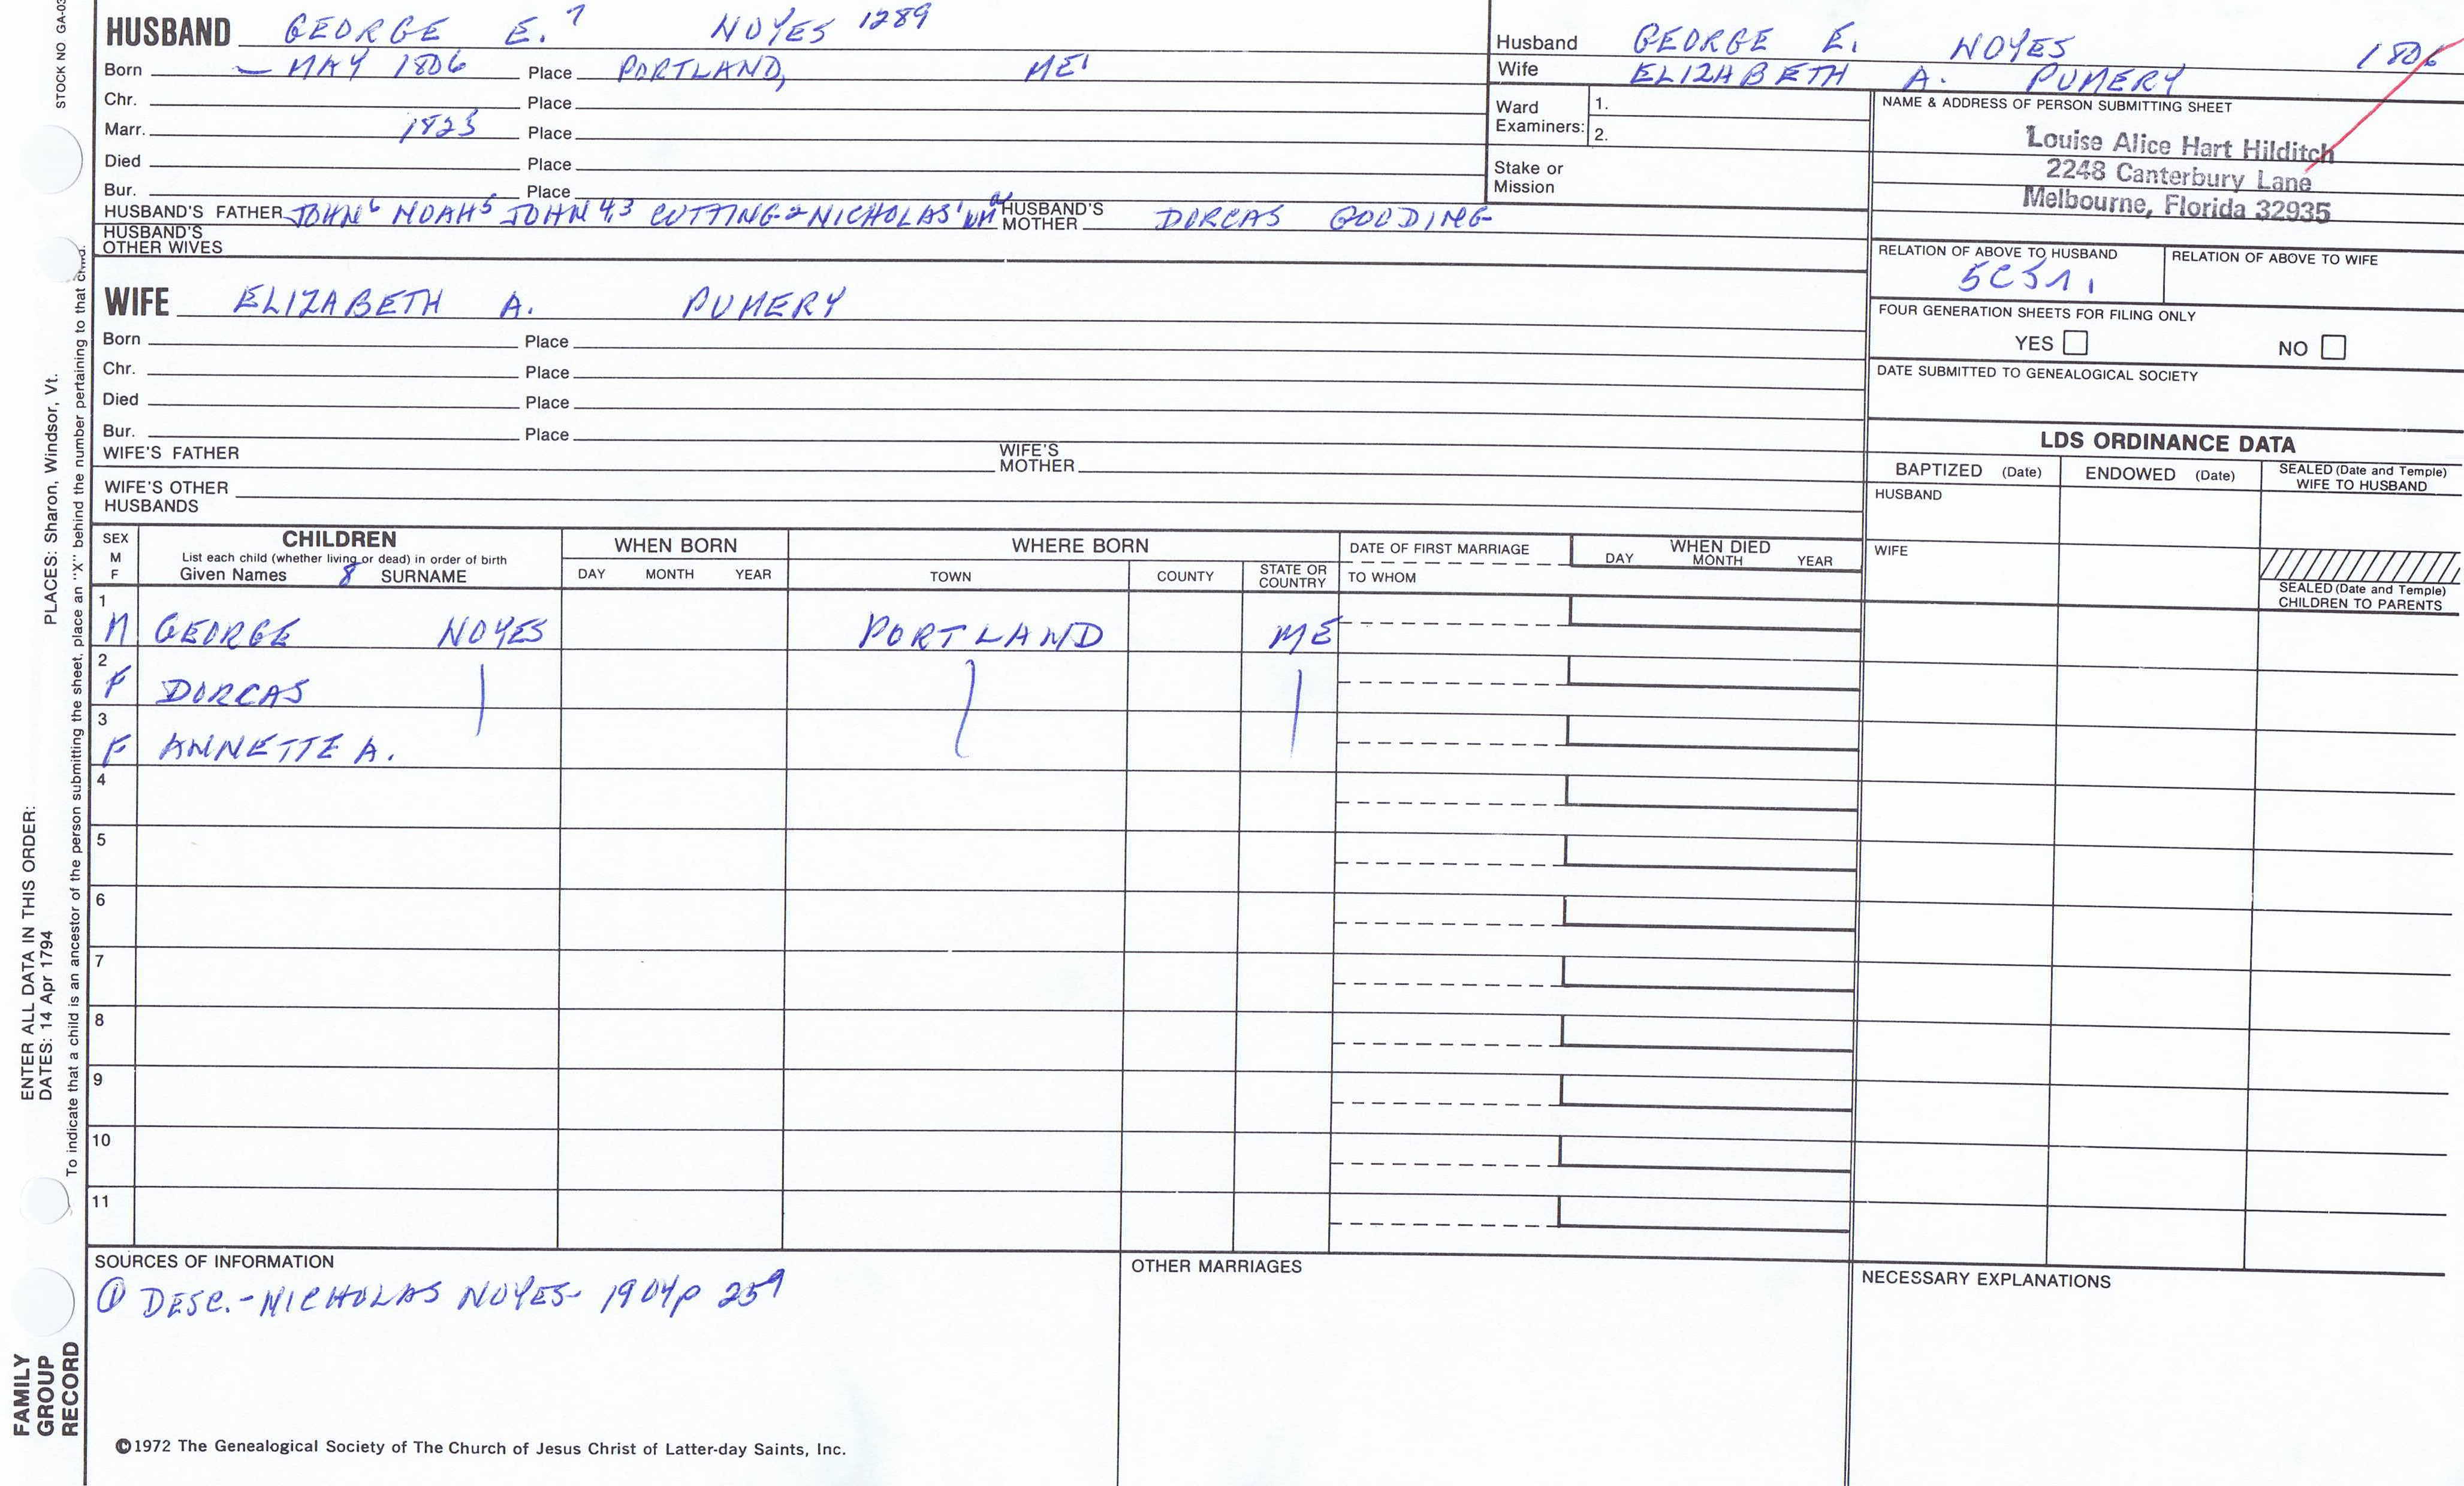 STOCK NO. GA-03
HUSBAND GEORGE E.7 NOYES 1289
Born — MAY 1806 Place PORTLAND, ME
Chr. Place
Marr. 1823 Place
Died Place
Bur. Place
HUSBAND'S FATHER JOHN6 NOAH5 JOHN4,3 CUTTING2 NICHOLAS1 WM HUSBAND'S MOTHER DORCAS GOODING
HUSBAND'S OTHER WIVES
Husband GEORGE E. NOYES 1806
Wife ELIZABETH A. PUMERY
Ward Examiners: 1.
2.
Stake or Mission
NAME & ADDRESS OF PERSON SUBMITTING SHEET
Louise Alice Hart Hilditch
2248 Canterbury Lane
Melbourne, Florida 32935
RELATION OF ABOVE TO HUSBAND RELATION OF ABOVE TO WIFE
FOUR GENERATION SHEETS FOR FILING ONLY
YES NO
DATE SUBMITTED TO GENEALOGICAL SOCIETY
WIFE ELIZABETH A. PUMERY
Born Place
Chr. Place
Died Place
Bur. Place
WIFE'S FATHER WIFE'S MOTHER
WIFE'S OTHER HUSBANDS
LDS ORDINANCE DATA
BAPTIZED (Date) ENDOWED (Date) SEALED (Date and Temple) WIFE TO HUSBAND
HUSBAND
WIFE
SEALED (Date and Temple) CHILDREN TO PARENTS
SEX M F
CHILDREN
List each child (whether living or dead) in order of birth
Given Names 8 SURNAME
WHEN BORN
DAY MONTH YEAR
WHERE BORN
TOWN COUNTY STATE OR COUNTRY
DATE OF FIRST MARRIAGE
TO WHOM
WHEN DIED
DAY MONTH YEAR
1 M GEORGE NOYES PORTLAND ME
2 F DORCAS
3 F ANNETTE A.
4
5
6
7
8
9
10
11
SOURCES OF INFORMATION
① DESC.-NICHOLAS NOYES- 1904 p 259
OTHER MARRIAGES
NECESSARY EXPLANATIONS
©1972 The Genealogical Society of The Church of Jesus Christ of Latter-day Saints, Inc.
FAMILY GROUP RECORD
ENTER ALL DATA IN THIS ORDER:
DATES: 14 Apr 1794
PLACES: Sharon, Windsor, Vt.
To indicate that a child is an ancestor of the person submitting the sheet, place an "X" behind the number pertaining to that child.